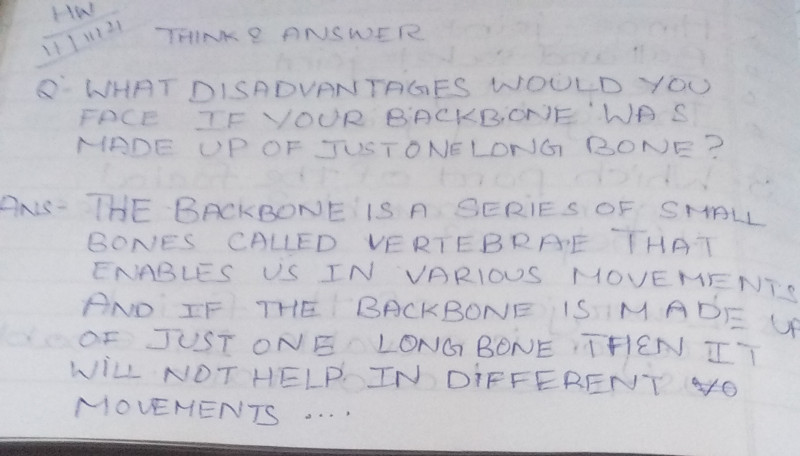 HW
11/11/21
THINK & ANSWER
Q- WHAT DISADVANTAGES WOULD YOU
FACE IF YOUR BACKBONE WAS
MADE UP OF JUST ONE LONG BONE?
ANS- THE BACKBONE IS A SERIES OF SMALL
BONES CALLED VERTEBRAE THAT
ENABLES US IN VARIOUS MOVEMENTS
AND IF THE BACKBONE IS MADE UP
OF JUST ONE LONG BONE THEN IT
WILL NOT HELP IN DIFFERENT
MOVEMENTS ....